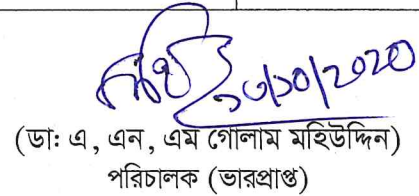 ২০/১০/2020
(ডা: এ, এন, এম গোলাম মহিউদ্দিন)
পরিচালক (ভারপ্রাপ্ত)